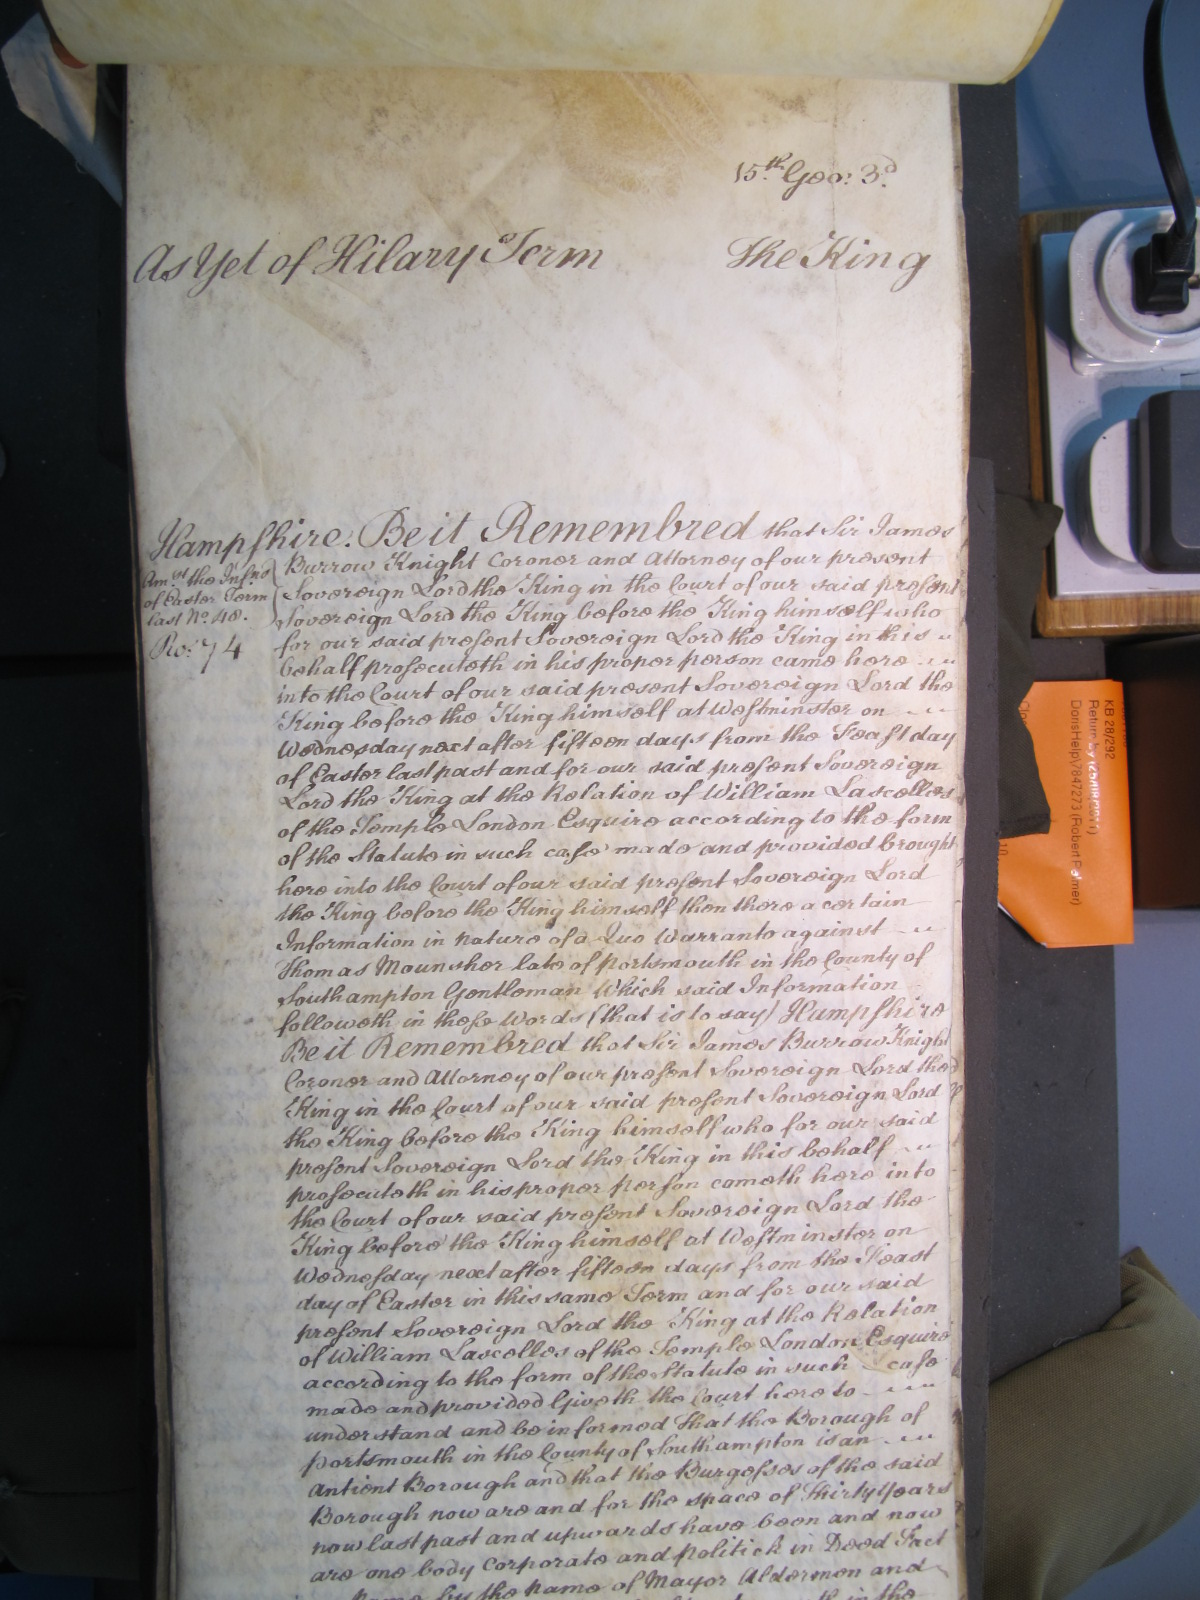 15.th Geo: 3.d
As Yet of Hilary Term The King
Hampshire. Be it Remembred that Sir James
Burrow Knight Coroner and Attorney of our present
Am.st the Inf.ns
of Easter Term
last No. 48.
Ro: 74
Sovereign Lord the King in the Court of our said present
Sovereign Lord the King before the King himself who
for our said present Sovereign Lord the King in this
behalf prosecuteth in his proper person came here
into the Court of our said present Sovereign Lord the
King before the King himself at Westminster on
Wednesday next after fifteen days from the Feast day
of Easter last past and for our said present Sovereign
Lord the King at the Relation of William Lascelles
of the Temple London Esquire according to the form
of the Statute in such case made and provided brought
here into the Court of our said present Sovereign Lord
the King before the King himself then there a certain
Information in nature of a Quo Warranto against
Thomas Mounsher late of Portsmouth in the County of
Southampton Gentleman Which said Information
followeth in these Words (that is to say) Hampshire
Be it Remembred that Sir James Burrow Knight
Coroner and Attorney of our present Sovereign Lord the
King in the Court of our said present Sovereign Lord
the King before the King himself who for our said
present Sovereign Lord the King in this behalf
prosecuteth in his proper person cometh here into
the Court of our said present Sovereign Lord the
King before the King himself at Westminster on
Wednesday next after fifteen days from the Feast
day of Easter in this same Term and for our said
present Sovereign Lord the King at the Relation
of William Lascelles of the Temple London Esquire
according to the form of the Statute in such case
made and provided Giveth the Court here to
understand and be informed That the Borough of
Portsmouth in the County of Southampton is an
Antient Borough and that the Burgesses of the said
Borough now are and for the space of Thirty Years
now last past and upwards have been and now
are one body Corporate and Politick in Deed Fact
Name by the Name of Mayor Aldermen and
in the
KB 28/292
Return by
DorisHelp\V847273 (Robert Palmer)